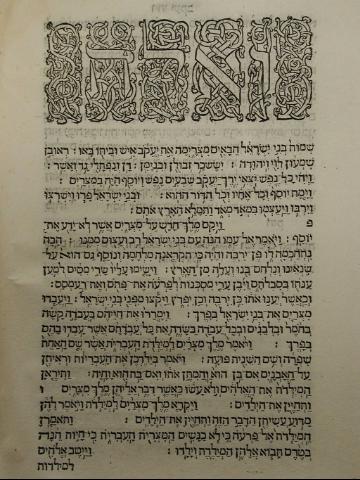 ואלה
שמות בני ישראל הבאים מצרימה את יעקב איש וביתו באו : ראובן
שמעון לוי ויהודה : יששכר זבולן ובנימן : דן ונפתלי גד ואשר :
ויהי כל נפש יוצאי ירך יעקב שבעים נפש ויוסף היה במצרים :
וימת יוסף וכל אחיו וכל הדור ההוא : ובני ישראל פרו וישרצו
וירבו ויעצמו במאד מאד ותמלא הארץ אתם :
פ ויקם מלך חדש על מצרים אשר לא ידע את
יוסף : ויאמר אל עמו הנה עם בני ישראל רב ועצום ממנו : הבה
נתחכמה לו פן ירבה והיה כי תקראנה מלחמה ונוסף גם הוא על
שנאינו ונלחם בנו ועלה מן הארץ : וישימו עליו שרי מסים למען
ענתו בסבלתם ויבן ערי מסכנות לפרעה את פתם ואת רעמסס :
וכאשר יענו אתו כן ירבה וכן יפרץ ויקצו מפני בני ישראל : ויעבדו
מצרים את בני ישראל בפרך : וימררו את חייהם בעבדה קשה
בחמר ובלבנים ובכל עבדה בשדה את כל עבדתם אשר עבדו בהם
בפרך : ויאמר מלך מצרים למילדת העבריות אשר שם האחת
שפרה ושם השנית פועה : ויאמר בילדכן את העבריות וראיתן
על האבנים אם בן הוא והמתן אתו ואם בת הוא וחיה : ותיראן
המילדת את האלהים ולא עשו כאשר דבר אליהן מלך מצרים ו
ותחיין את הילדים : ויקרא מלך מצרים למילדת ויאמר להן
מדוע עשיתן הדבר הזה ותחיין את הילדים : ותאמרן
המילדת אל פרעה כי לא כנשים המצרית העבריות כי חיות הנה
בטרם תבוא אלהן המילדת וילדו : וייטב אלהים
למילדות